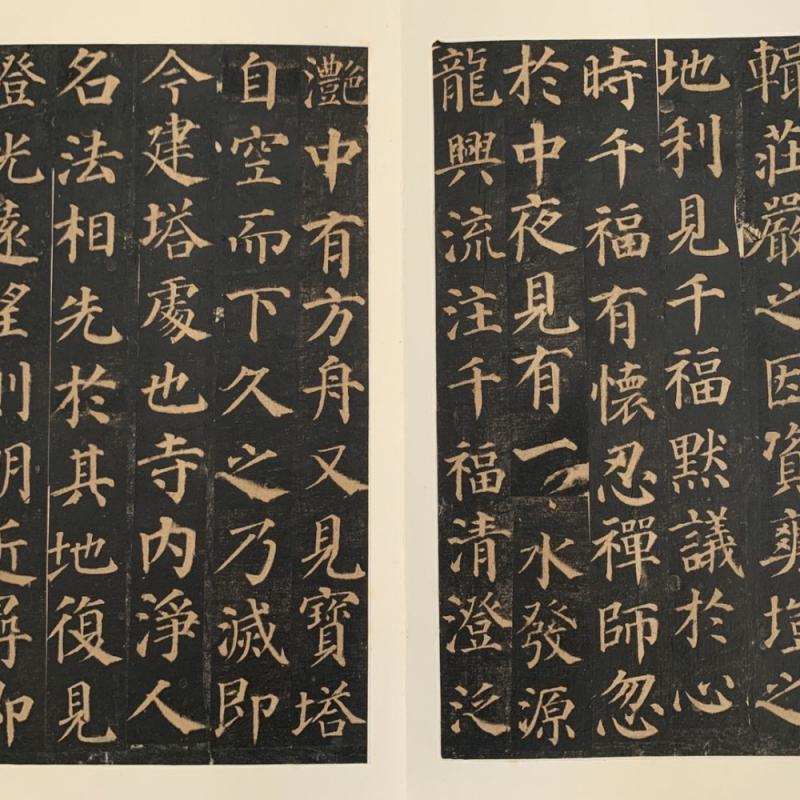 輯莊嚴之因資爽塏之
地利見千福默議於心
時千福有懷忍禪師忽
於中夜見有一水發源
龍興流注千福清澄泛
灧中有方舟又見寶塔
自空而下久之乃滅即
今建塔處也寺內淨人
名法相先於其地復見
燈光遠望則明近尋即